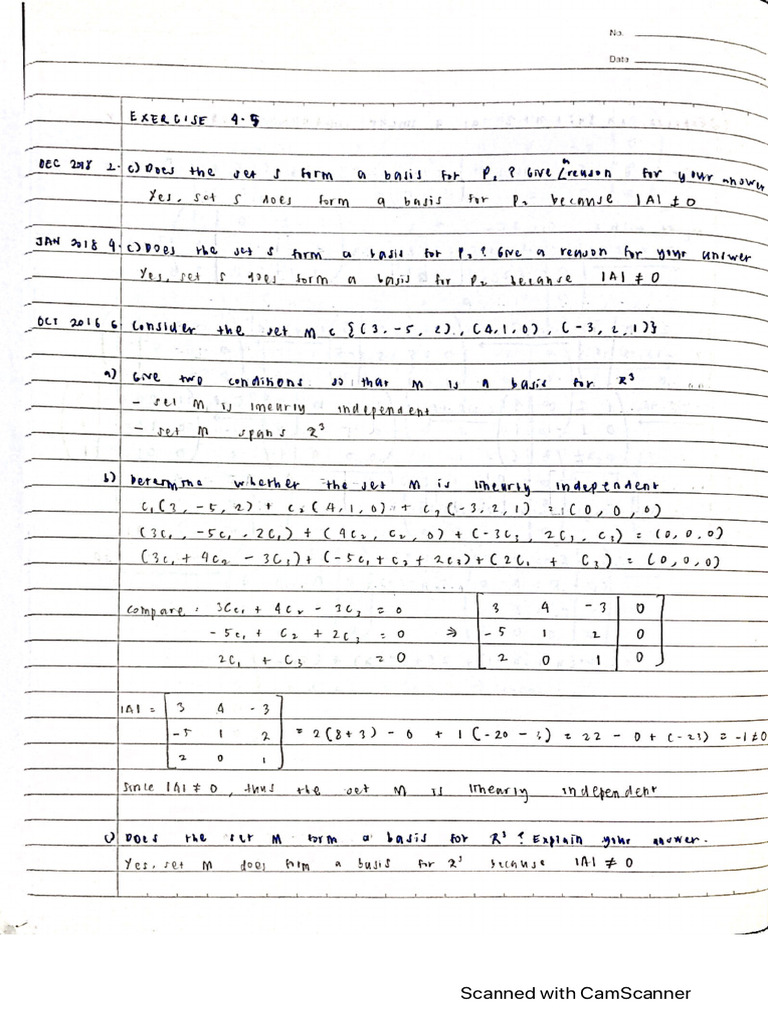 No.
Date
EXERCISE 4.5
DEC 2018 2. c) Does the set S form a basis for P₂ ? Give a reason for your answer
Yes, set S does form a basis for P₂ because |A| ≠ 0
JAN 2018 4. c) Does the set S form a basis for P₂ ? Give a reason for your answer
Yes, set S does form a basis for P₂ because |A| ≠ 0
OCT 2016 6 Consider the set M = {(3, -5, 2), (4, 1, 0), (-3, 2, 1)}
a) Give two conditions so that M is a basis for R³
- set M is linearly independent
- set M spans R³
b) Determine whether the set M is linearly independent
C₁(3, -5, 2) + C₂(4, 1, 0) + C₃(-3, 2, 1) = (0, 0, 0)
(3C₁, -5C₁, 2C₁) + (4C₂, C₂, 0) + (-3C₃, 2C₃, C₃) = (0, 0, 0)
(3C₁ + 4C₂ - 3C₃) + (-5C₁ + C₂ + 2C₃) + (2C₁ + C₃) = (0, 0, 0)
Compare : 3C₁ + 4C₂ - 3C₃ = 0 3 4 -3 0
-5C₁ + C₂ + 2C₃ = 0 ⇒ -5 1 2 0
2C₁ + C₃ = 0 2 0 1 0
|A| = 3 4 -3
-5 1 2 = 2(8+3) - 0 + 1(-20 - 3) = 22 - 0 + (-23) = -1 ≠ 0
2 0 1
Since |A| ≠ 0, thus the set M is linearly independent
c) Does the set M form a basis for R³ ? Explain your answer.
Yes, set M does form a basis for R³ because |A| ≠ 0
Scanned with CamScanner